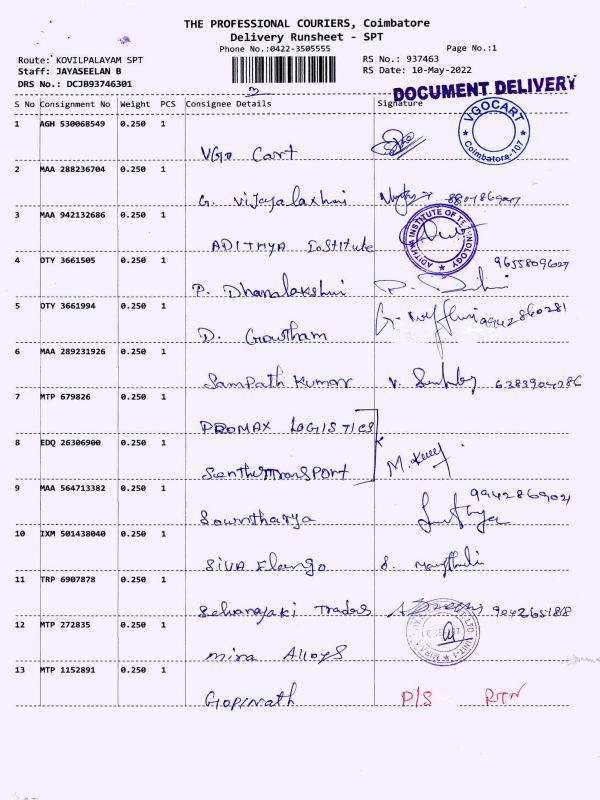 THE PROFESSIONAL COURIERS, Coimbatore
Delivery Runsheet - SPT
Phone No.:0422-3505555
Page No.:1
Route: KOVILPALAYAM SPT
RS No.: 937463
Staff: JAYASEELAN B
RS Date: 10-May-2022
DRS No.: DCJB93746301
DOCUMENT DELIVERY
S No Consignment No Weight PCS Consignee Details Signature
1 AGH 530068549 0.250 1
VGO Cart
VGOCART Coimbatore-107
2 MAA 288236704 0.250 1
G. Vijayalaxhmi
3 MAA 942132686 0.250 1
ADITHYA Institute
ADITHYA INSTITUTE OF TECHNOLOGY
4 DTY 3661505 0.250 1
P. Dhanalakshmi
9655809627
5 DTY 3661994 0.250 1
D. Gowtham
9942860281
6 MAA 289231926 0.250 1
Sampath Kumar
6383904286
7 MTP 679826 0.250 1
PROMAX LOGISTICS
8 EDQ 26306900 0.250 1
M.
9 MAA 564713382 0.250 1
Sowntharya
9942869021
10 IXM 501438040 0.250 1
Siva Elango
11 TRP 6907878 0.250 1
Selvanayaki Traders
12 MTP 272835 0.250 1
Mira Alloys
13 MTP 1152891 0.250 1
Gopinath P/S RTN